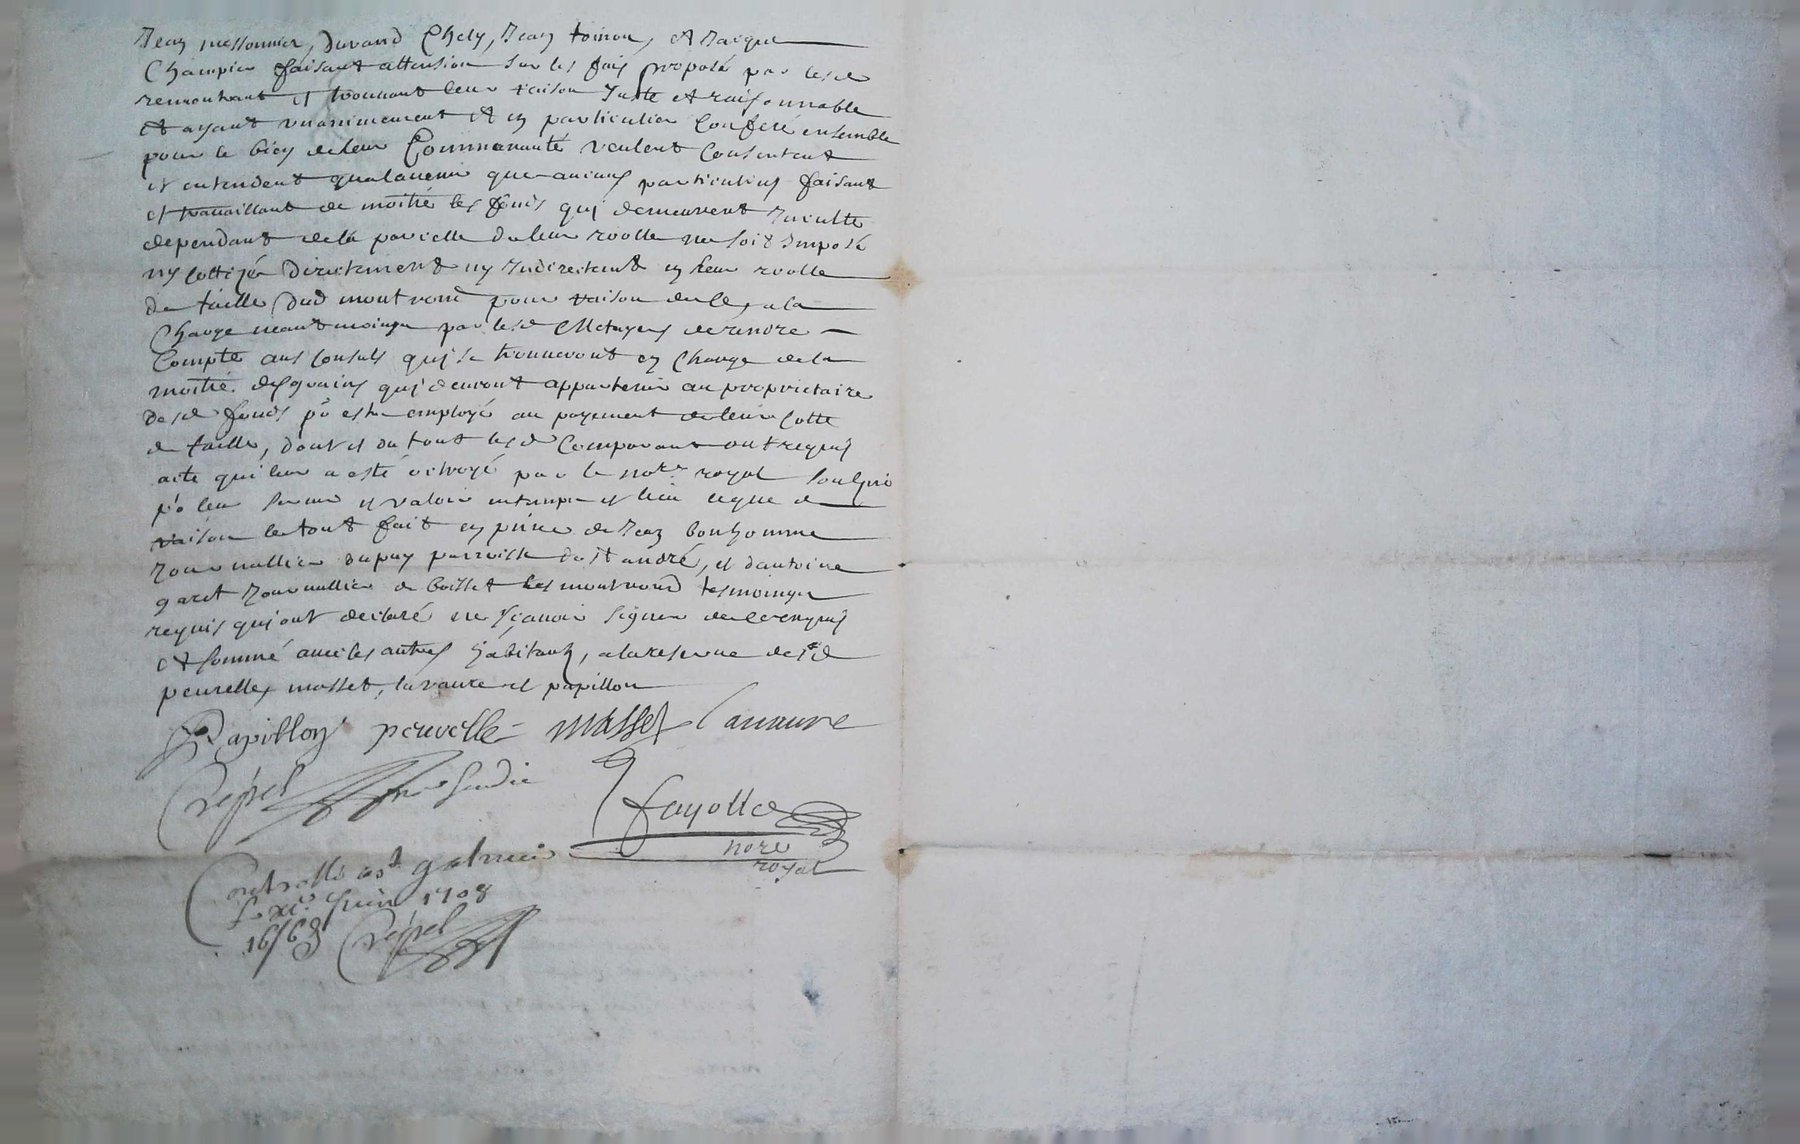 Jean messonnier, Durand Chely, Jean toinon, et Jacque
Champier faisant attention sur les fais proposé par lesd
remontrant et trouvant leur raison Juste et raisonnable
et ayant unanimement et en particulier conferé ensemble
pour le bien de leur Communauté veulent consentent
et entendent qualavenir que aucuns particuliers faisant
et travaillant de moitié les fonds qui demeurent Inculte
dependant de la parcelle de leur roolle ne soit Imposé
ny cottizé directement ny Indirectemt en leur roolle
de taille dud montrond pour raison de ce, a la
Charge neantmoings par lesd Metayers de rendre
Compte aus consuls qui se trouveront en charge de la
moitié des grains qui devront appartenir au proprietaire
desd fonds pr estre employé au payement de leur cotte
de taille, dont et du tout lesd Comparant ont requis
acte qui leur a esté octroyé par le nore royal soubsné
pr leur servir et valoir en temps et lieu ce que de
raison le tout fait en pnce de Jean bonhomme
Journallier du puy parroisse de st andré, et dantoine
garet Journallier de boisset les montrond tesmoings
requis qui ont declaré ne sçavoir signer de ce enquis
et sommé avec les autres habitants, a la reserve desd
peurelle, masset, lavaure et papillon
Papillon peurelle masset Lavaure
Crespel sindic
fayolle
nore
royal
Controllé a st galmier
le xie Juin 1708
Crespel